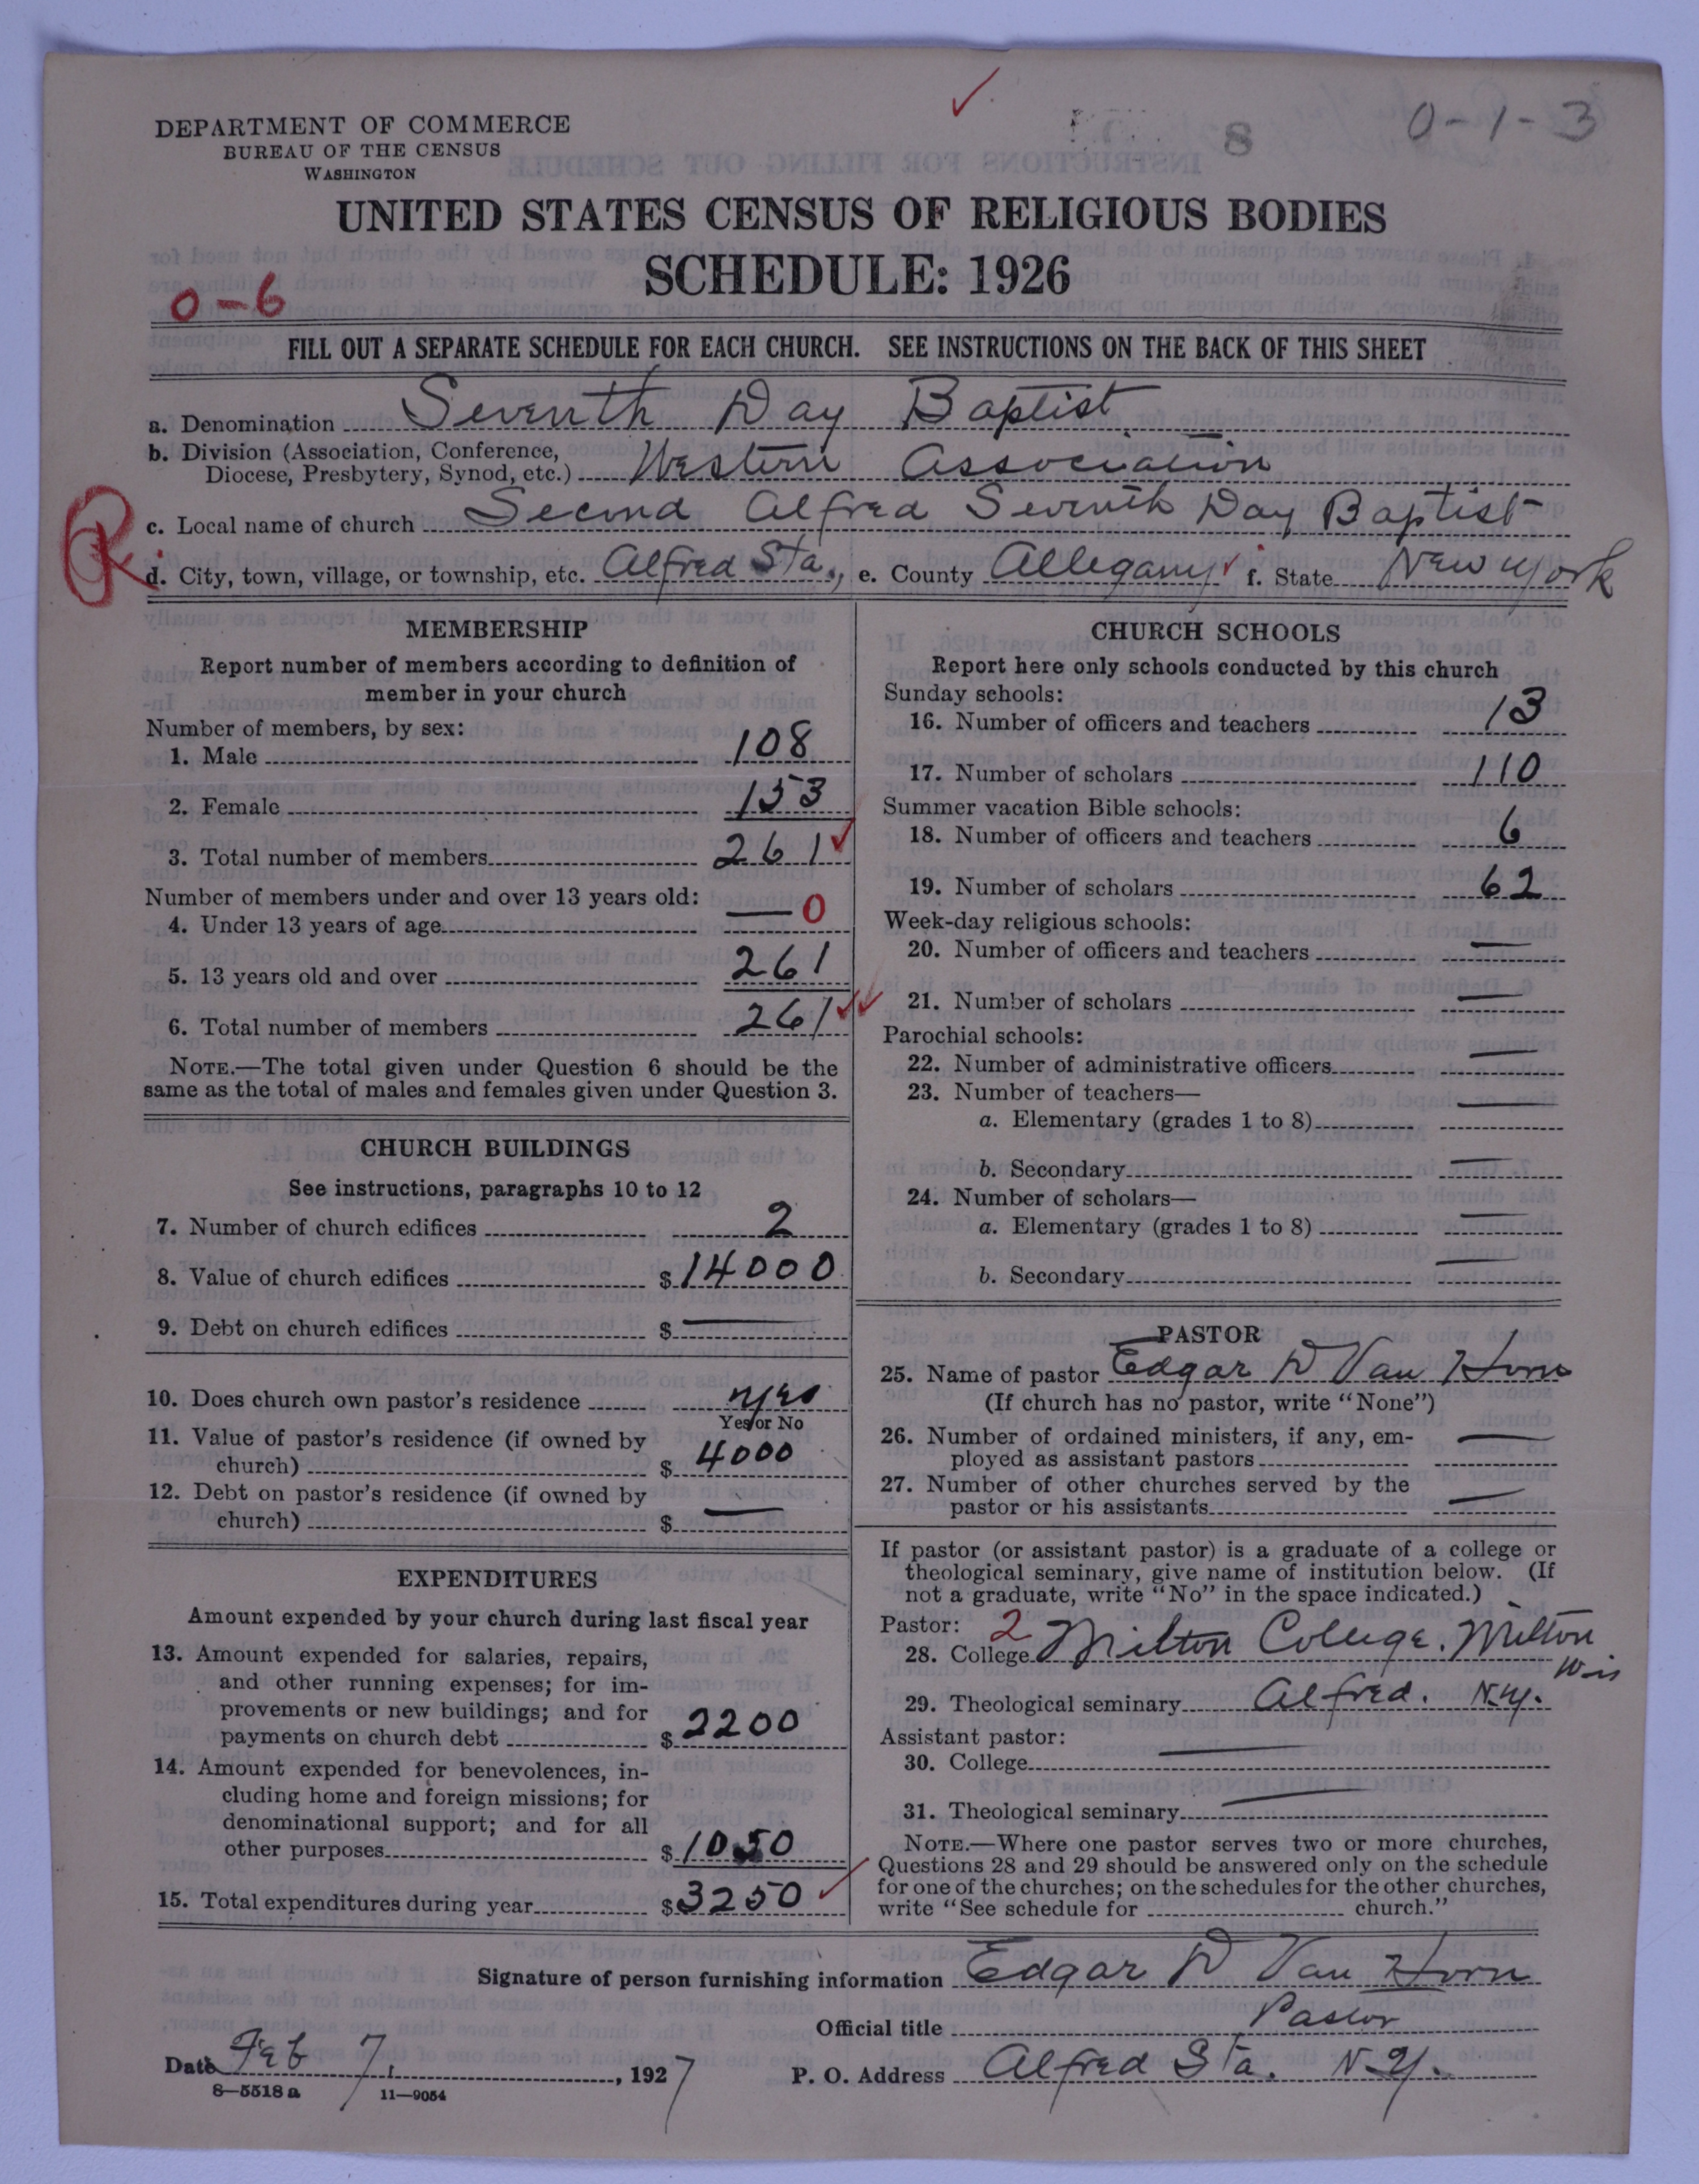 0-1-3
8
DEPARTMENT OF COMMERCE
BUREAU OF THE CENSUS
WASHINGTON
UNITED STATES CENSUS OF RELIGIOUS BODIES
SCHEDULE: 1926
0-6
FILL OUT A SEPARATE SCHEDULE FOR EACH CHURCH. SEE INSTRUCTIONS ON THE BACK OF THIS SHEET
a. Denomination Seventh Day Baptist
b. Division (Association, Conference,
Diocese, Presbytery, Synod, etc.) Western Association
c. Local name of church Second Alfred Seventh Day Baptist
d. City, town, village, or township, etc. Alfred Sta., e. County Allegany f. State New York
MEMBERSHIP
Report number of members according to definition of
member in your church
Number of members, by sex:
1. Male 108
2. Female 153
3. Total number of members 261
Number of members under and over 13 years old:
4. Under 13 years of age — 0
5. 13 years old and over 261
6. Total number of members 261
NOTE.—The total given under Question 6 should be the
same as the total of males and females given under Question 3.
CHURCH BUILDINGS
See instructions, paragraphs 10 to 12
7. Number of church edifices 2
8. Value of church edifices $14000
9. Debt on church edifices $ —
10. Does church own pastor's residence yes
Yes or No
11. Value of pastor's residence (if owned by
church) $ 4000
12. Debt on pastor's residence (if owned by
church) $ —
EXPENDITURES
Amount expended by your church during last fiscal year
13. Amount expended for salaries, repairs,
and other running expenses; for im-
provements or new buildings; and for
payments on church debt $ 2200
14. Amount expended for benevolences, in-
cluding home and foreign missions; for
denominational support; and for all
other purposes $ 1050
15. Total expenditures during year $3250
CHURCH SCHOOLS
Report here only schools conducted by this church
Sunday schools:
16. Number of officers and teachers 13
17. Number of scholars 110
Summer vacation Bible schools:
18. Number of officers and teachers 6
19. Number of scholars 62
Week-day religious schools:
20. Number of officers and teachers —
21. Number of scholars —
Parochial schools:
22. Number of administrative officers —
23. Number of teachers—
a. Elementary (grades 1 to 8) —
b. Secondary —
24. Number of scholars—
a. Elementary (grades 1 to 8) —
b. Secondary —
PASTOR
25. Name of pastor Edgar D Van Horn
(If church has no pastor, write "None")
26. Number of ordained ministers, if any, em-
ployed as assistant pastors —
27. Number of other churches served by the
pastor or his assistants —
If pastor (or assistant pastor) is a graduate of a college or
theological seminary, give name of institution below. (If
not a graduate, write "No" in the space indicated.)
Pastor: 2
28. College Milton College. Milton
Wis
29. Theological seminary Alfred. N.Y.
Assistant pastor:
30. College —
31. Theological seminary —
NOTE.—Where one pastor serves two or more churches,
Questions 28 and 29 should be answered only on the schedule
for one of the churches; on the schedules for the other churches,
write "See schedule for church."
Signature of person furnishing information Edgar D Van Horn
Official title Pastor
Date Feb 7, 1927 P. O. Address Alfred Sta. N.Y.
8—5518 a 11—9054